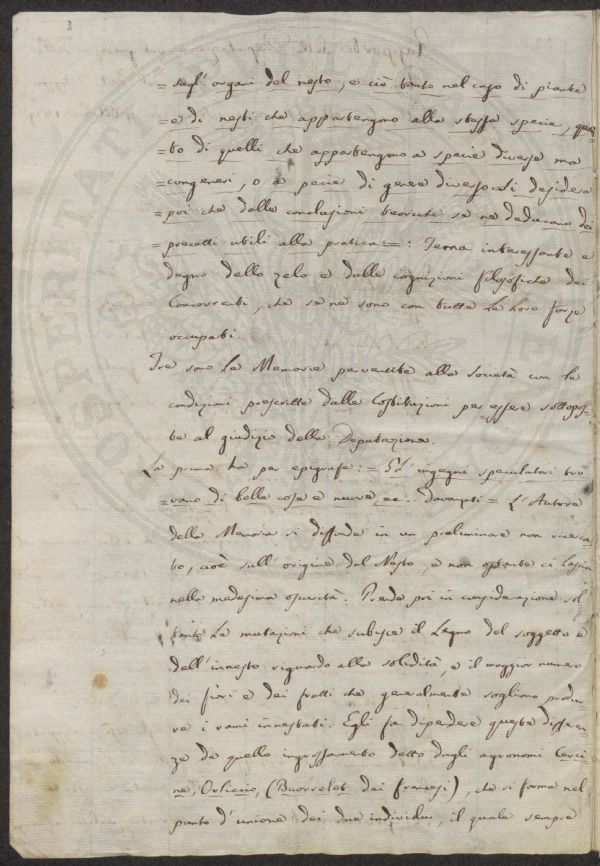 2
= sugl' organi del nesto, e ciò tanto nel caso di piante
= e di nesti che appartengono alla stessa specie, quan=
= to di quelli che appartengono a specie diverse ma
= congeneri, o a specie di genere diverso. Si desidera
= poi che dalle conclusioni teoriche se ne deducano dei
= precetti utili alla pratica =: Tema interessante e
degno dello zelo e dalle cognizioni filosofiche dei
Concorrenti, che se ne sono con tutte le loro forze
occupati.
Tre sono le Memorie pervenute alla società con le
condizioni prescritte dalle Costituzioni per essere sottopos=
te al giudizio della Deputazione.
La prima ha per epigrafe: = Gl' ingegni speculatori tro
= vano di belle cose e nuove, ec. = L' Autore
della Memoria si diffonde in un preliminare non ricerca=
to, cioè sull' origine del Nesto, e non ostante ci lascia
nella medesima oscurità. Prende poi in considerazione sol
tanto le mutazioni che subisce il Legno del soggetto e
dell' innesto riguardo alla solidità, e il maggior numero
dei fiori e dei frutti che generalmente sogliono produr
re i rami innestati. Egli fa dipendere queste differen
ze da quello ingrossamento detto dagli agronomi Cerci
ne, Orliccio, (Bourrelet dai francesi), che si forma nel
punto d' unione dei due individui, il quale sempre